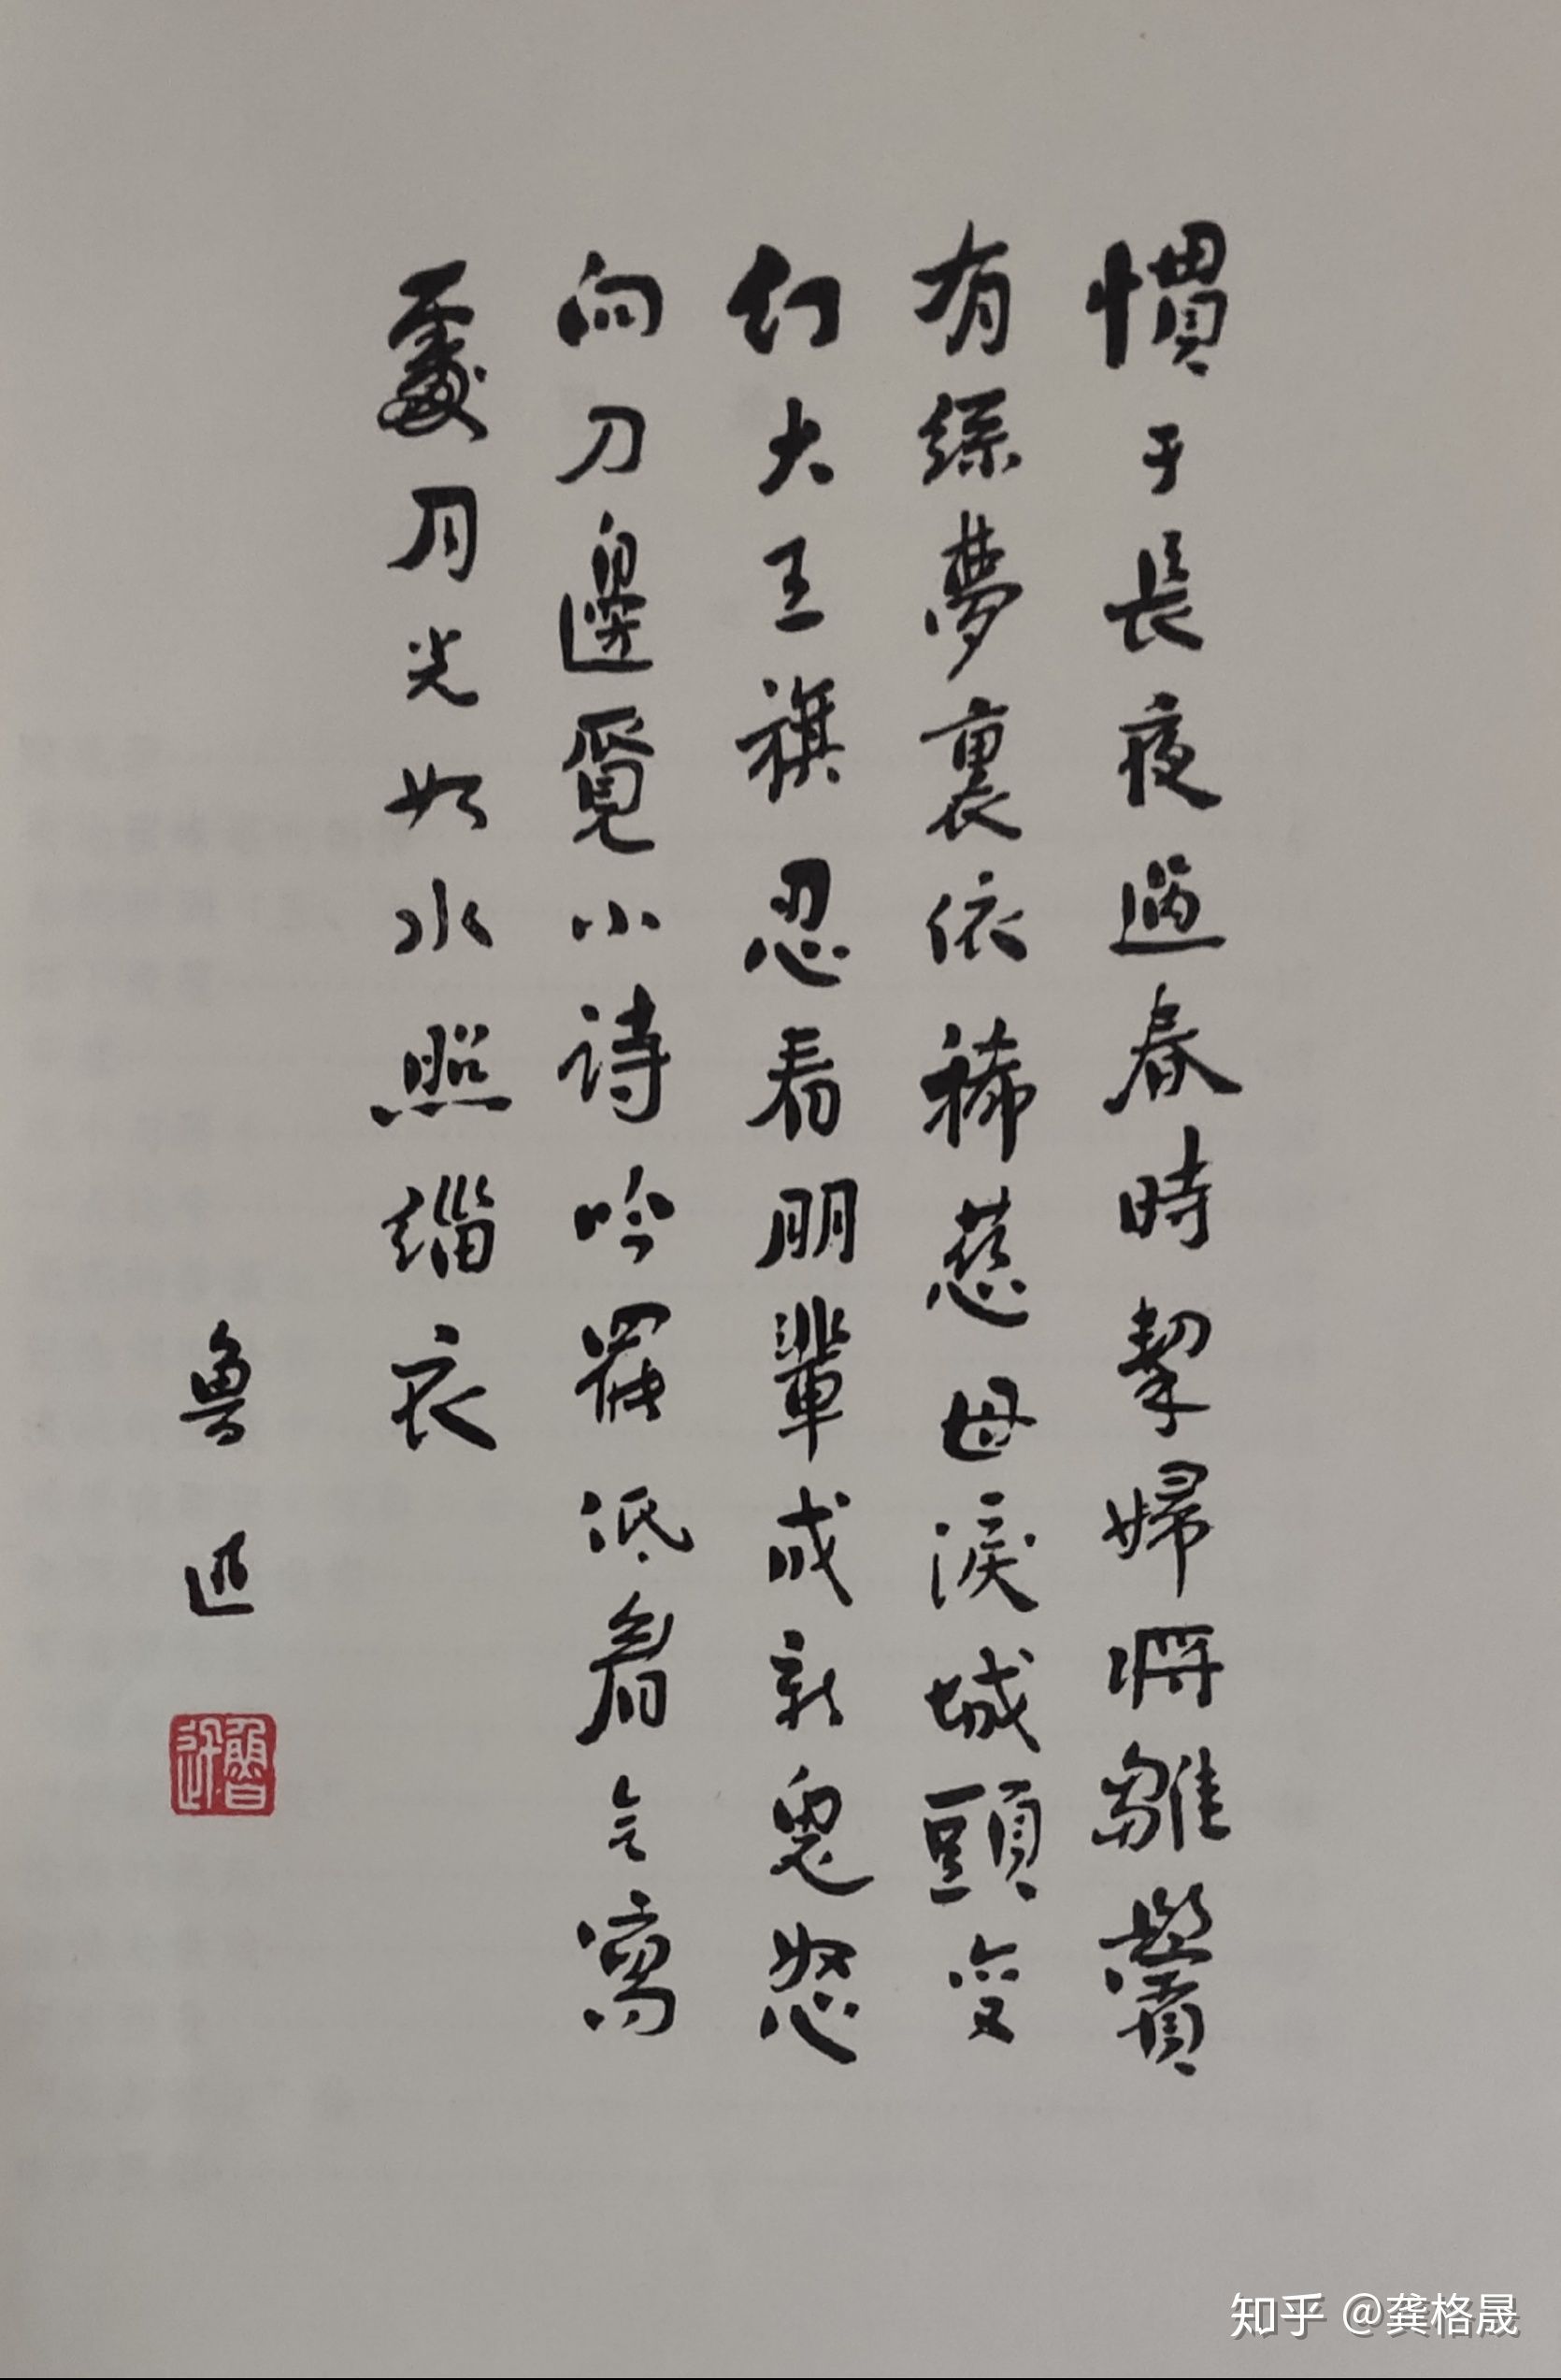 慣于長夜過春時挈婦將雛鬢
有絲夢裏依稀慈母淚城頭變
幻大王旗忍看朋輩成新鬼怒
向刀邊覓小詩吟罷低看無寫
處月光如水照緇衣
魯迅
魯迅
知乎 @龚格晟